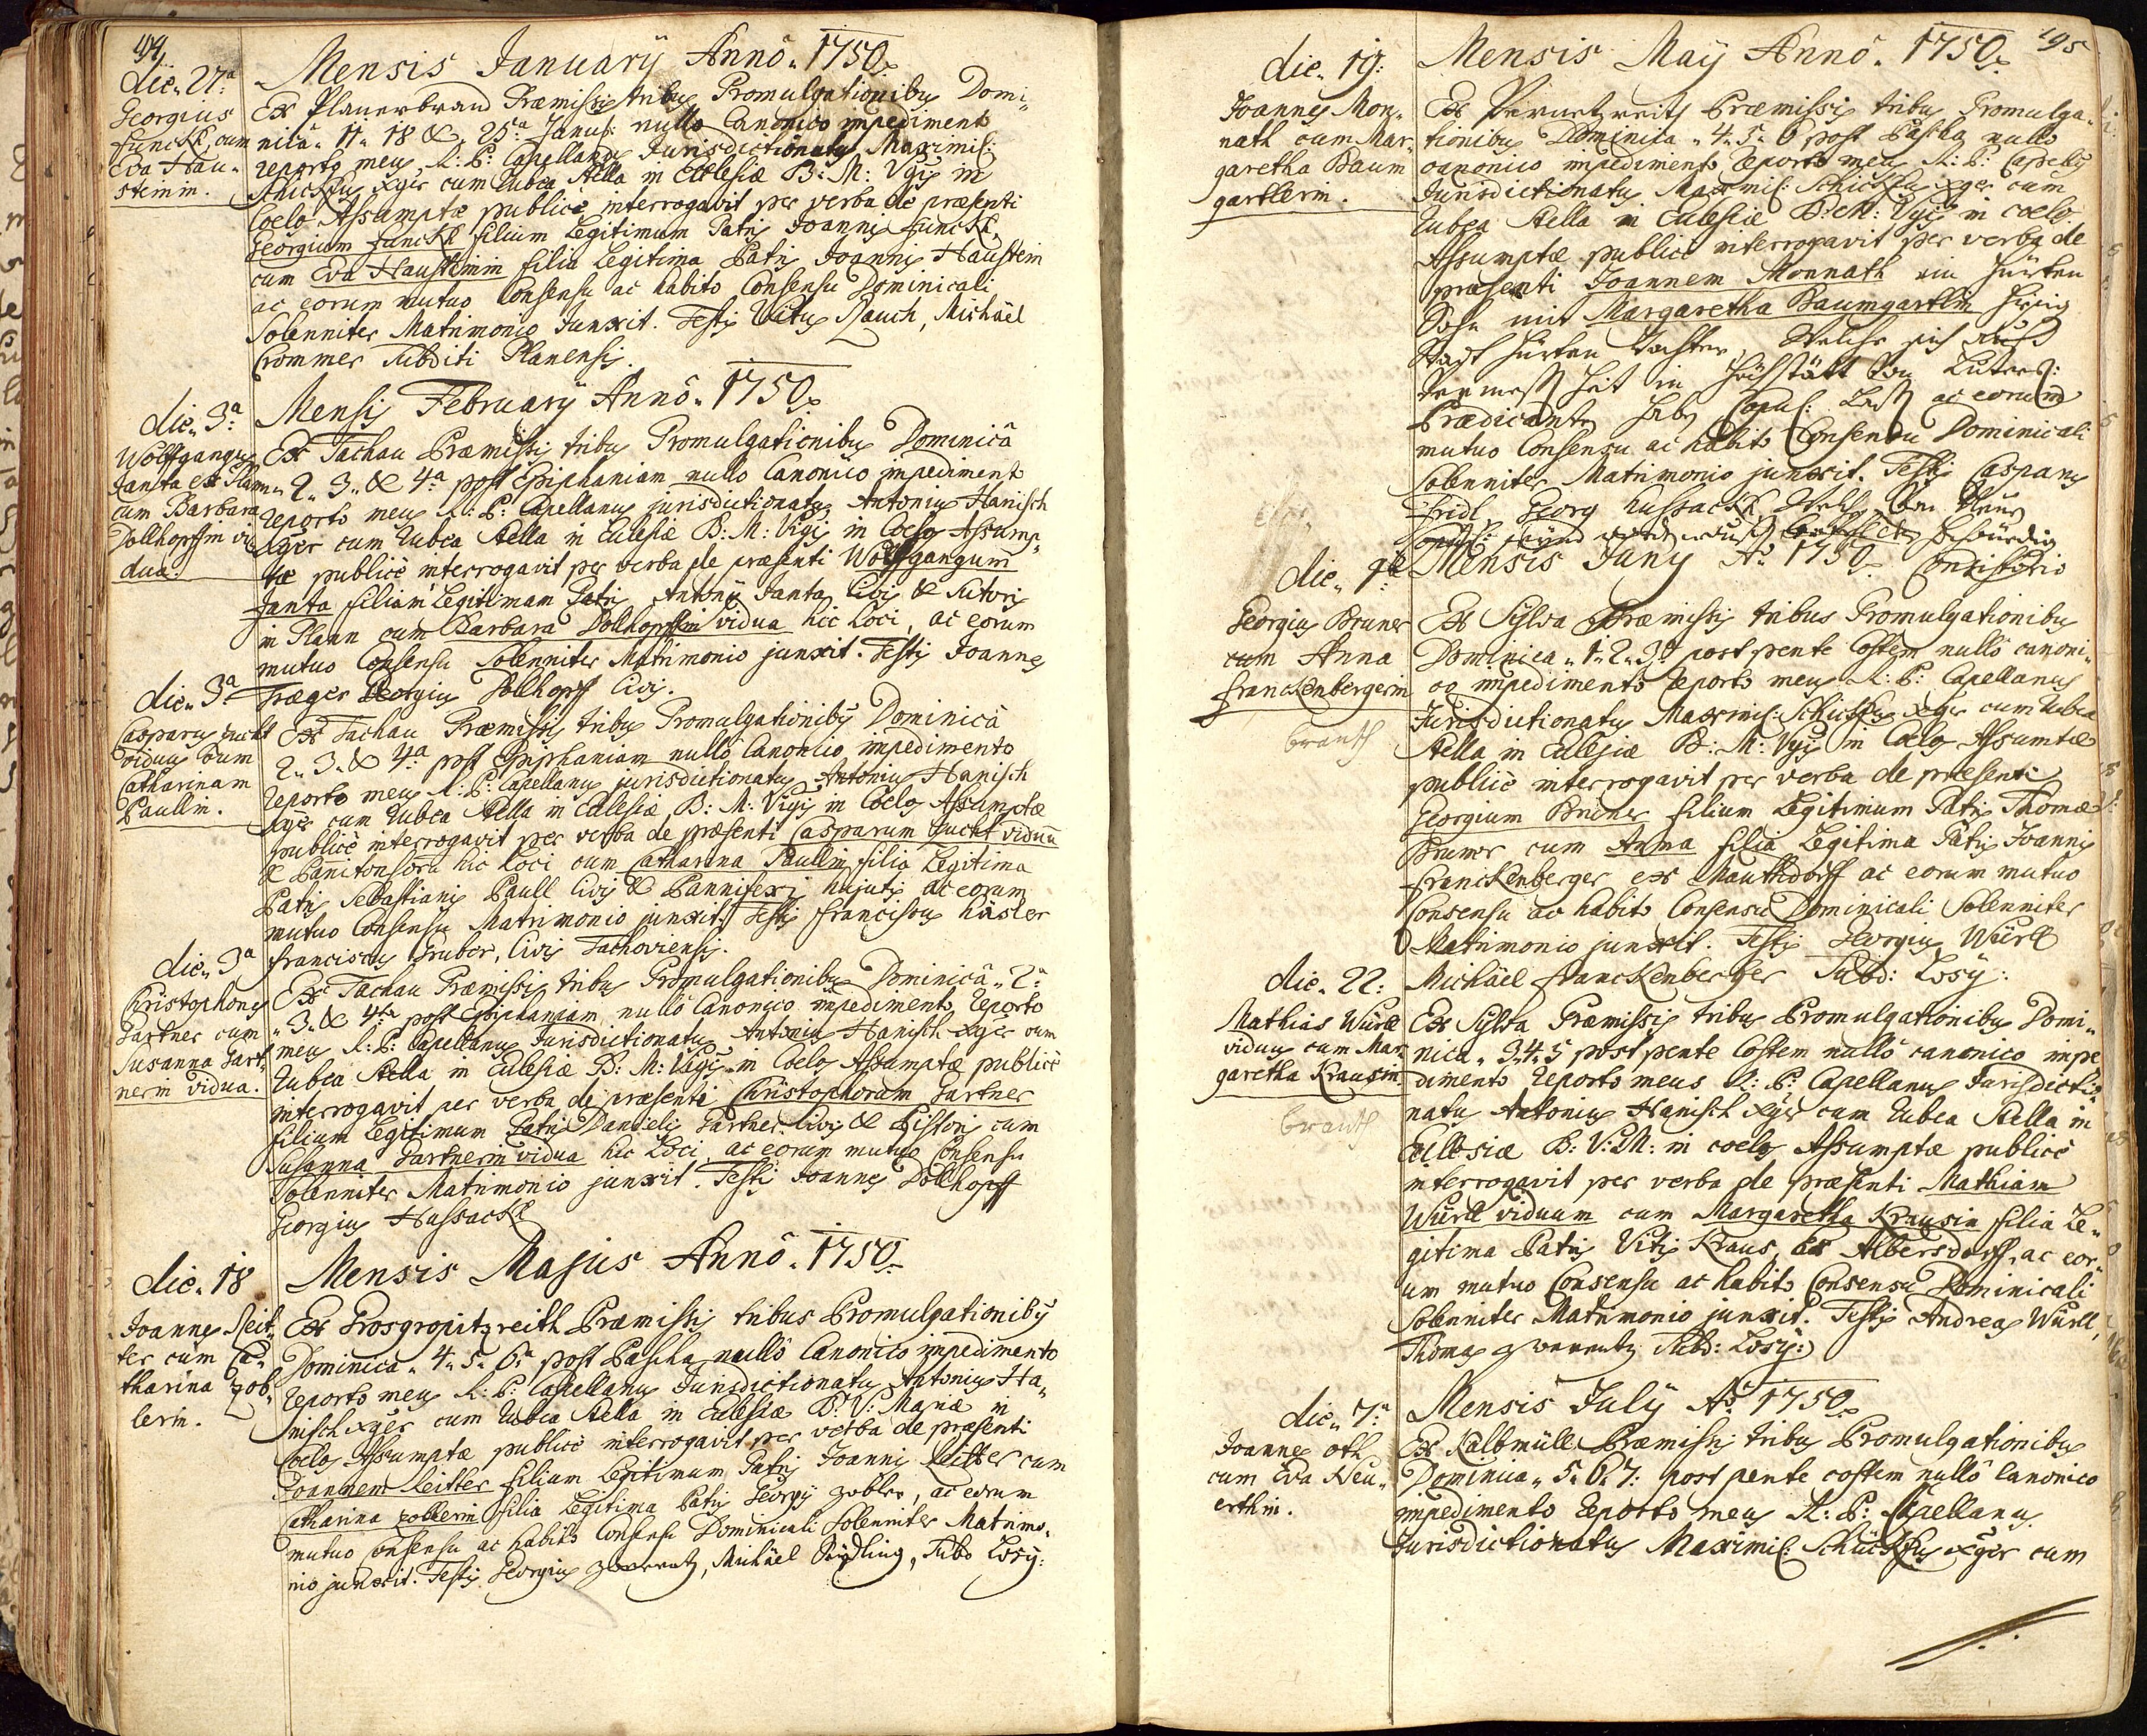 494
Mensis Januarÿ Annô. 1750
die. 27ª
Georgius
Funckh, cum
Eva Hau-
steinin.
Ex Planerbrand Præmissis tribus Promulgationibus Domi-
nicâ. 11. 18 & 25ª Januar: nullo Canonico impedimento
reperto meus R: P: Capellanus Jurisdictionatus Maximil:
Schickfus xger cum rubea stella in Ecclesiæ B: M: Vgis in
Coelos Assumptæ publicè interrogavit per verba de præsenti
Georgium Funckh filium Legitimum Patris Joannis Funckh,
cum Eva Hausteinin filia Legitima Patris Joannis Haustein
ac eorum mutuo Consensu ac habito Consensu Dominicali
Solenniter Matrimonio Junxit. Testis Vitus Rauch, Michäel
Crommer Subditi Planensis.
Mensis Februarÿ Annô. 1750
die. 3ª
Wolffgangus
Janta ex Plann
cum Barbara
Dollhopffin vi-
dua.
Ex Tachau Præmissis tribus Promulgationibus Dominicâ
2. 3. & 4ª post Epiphaniam nullo Canonico impedimento
reperto meus R: P: Capellanus jurisdictionatus Antonius Hanisch
xger cum rubea stella in Eclesiæ B: M: Vigis in Coelos Assump-
tæ publicè interrogavit per verba de præsenti Wolffgangum
Janta filium Legitimum Patris Antonÿ Janta Civis & Sutoris
in Plann cum Barbara Dollhopffin vidua hic Loci, ac eorum
mutuo Consensu Solenniter Matrimonio junxit. Testis Joannes
Træger Georgius Dollhopff Civis.
die. 3ª
Casparus Fucht
viduus cum
Catharinam
Paullin.
Ex Tachau Præmissis tribus Promulgationibus Dominicâ
2. 3. & 4ª post Epiphaniam nullô Canonico impedimento
reperto meus R: P: Capellanus jurisdictionatus Antonius Hanisch
xger cum rubea stella in Eclesiæ, B: M: Vigis in Coelos Assumptæ
publicè interrogavit per verba de præsenti Casparum Fucht viduum
& Pannitonsorem hic Loci cum Catharina Paullin filia Legitima
Patris Sebastianis Paull Civis & Pannifexis hujatis ac eorum
mutuo Consensu Matrimonio junxit. Testis Franciscus häsler
Franciscus Gruber, Civis Tachoviensis.
die. 3ª
Christophorus
Gartner cum
Susanna Gart-
nerin vidua.
Ex Tachau Præmissis tribus Promulgationibus Dominicâ. 2ª
3. & 4ta post Epiphaniam nullô Canonico impedimento reperto
meus R: P: Capellanus Jurisdictionatus Antonius Hanisch xger cum
rubea stella in Eclesiæ B: M: Vigis in Coelos Assumptæ publicè
interrogavit per verba de præsenti Christophorum Gartner
filium Legitimum Patris Danielis Gartner Civis & Pistoris cum
Susanna Gartnerin vidua hic Loci, ac eorum mutuo Consensu
Solenniter Matrimonio junxit. Testis Joannes Dollhopff
Georgius Hussackh
Mensis Majus Annô. 1750
die. 18
Joannes Reit-
ter cum Ca-
tharina Zob-
lerin.
Ex Prosgropitzreith Præmissis tribus Promulgationibus
Dominica. 4. 5. 6ª post Pascha nullô Canonico impedimento
reperto meus R: P: Capellanus Jurisdictionatus Antonius Ha-
nisch xger cum rubea stella in Eclesiæ B: V: Mariæ in
Coelos Assumptæ publicè interrogavit per verba de præsenti
Joannem Reitter filium Legitimum Patris Joannis Reitter cum
Catharina zoblerin filia Legitima Patris Georgÿ zobler, ac eorum
mutuo Consensu ac habito Consensu Dominicali Solenniter Matrimo-
nio junxit. Testis Georgius zwerentz, Michäel Seydling, Subd Losy:
495
Mensis Maÿ Annô. 1750
die. 19:
Joannes Mon-
nath cum Mar-
garetha Baum
gartlerin.
Ex Præmissis tribus Promulga-
tionibus Dominica. 4. 5. 6 post Pascha nullo
canonico impedimento reperto meus R: P: Capells
Jurisdictionatus Maximil: Schickfus xger cum
rubea stella in Eclesiæ B: M: Vgis in coelos
Assumptæ publicè interrogavit per verba de
præsenti Joannem Monnath ein hürten
Sohn mit Margaretha Baumgartlin
Statt hürten tochter,
Zeit in
Prædicanten ac eorum
mutuo Consensu ac habito Consensu Dominicali
Solenniter Matrimonio junxit. Testis Casparus
Fridl Georg Hussackh
Consistorio
Mensis Junÿ Aô. 1750
die. 9te
Georgius Bruner
cum Anna
Franckenbergerin
brauth
Ex Sÿlva Præmissis tribus Promulgationibus
Dominica. 1. 2. 3. post pente Costem nullô canoni-
co impedimento reperto meus R: P: Capellanus
Jurisdictionatus Maximil: Schickfus xger cum rubea
stella in Eclesiæ B: M: Vgis in Coelos Assumtæ
publicè interrogavit per verba de præsenti
Georgium Bruner filium Legitimum Patris Thomæ
Bruner cum Anna filia Legitima Patris Joannis
Franckenberger ex Mauthdorff ac eorum mutuo
Consensu ac habito Consensu Dominicali Solenniter
Matrimonio junxit. Testis Georgius Würll
Michäel Franckenberger Subd: Losÿ:
die. 22:
Mathias Würll
viduus cum Mar-
garetha Krausin
brauth
Ex Sylva Præmissis tribus Promulgationibus Domi-
nica. 3. 4. 5 post pente Costem nullô canonico impe
dimento reperto meus R: P: Capellanus Jurisdictio-
natus Antonius Hanisch xger cum rubea stella in
Ecclesiæ B: V: M: in coelos Assumptæ publicè
interrogavit per verba de præsenti Mathiam
Würll viduum cum Margaretha Krausin filia Le-
gitima Patris Vitis Kraus, ex Albersdorff, ac eor-
um mutuo Consensu ac habito Consensu Dominicali
Solenniter Matrimonio junxit. Testis Andreas Würll,
Thomas zwerentz Subd: Losÿ:
Mensis Julÿ Aô. 1750
die. 7.ª
Joannes oth
cum Eva Neu-
erthin.
Ex Kalbmülle Præmissis tribus Promulgationibus
Dominica. 5. 6. 7: post pente costem nullô Canonico
impedimento reperto meus R: P: Capellanus
Jurisdictionatus Maximil: Schückfus xger cum